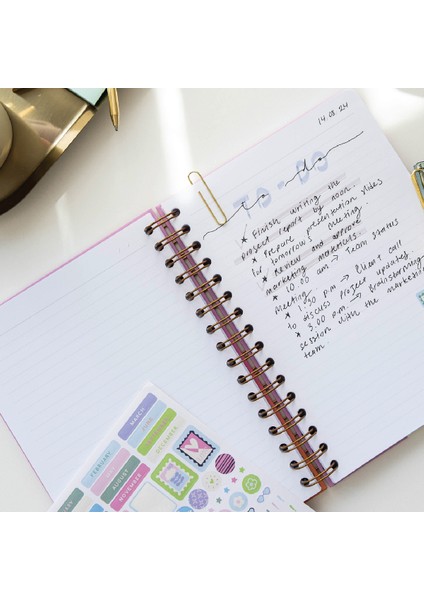 14.03.24
TO-DO
* Finish writing the
project report by noon.
* Prepare presentation slides
for tomorrow's meeting.
* Review and approve
marketing materials.
* 10.00 am → Team status
Meeting.
* 1.30 p.m → Client call
to discuss project updates.
* 3.00 p.m → Brainstorming
session with the marketing
team
MARCH
JUNE
FEBRUARY
AUGUST
NOVEMBER
DECEMBER